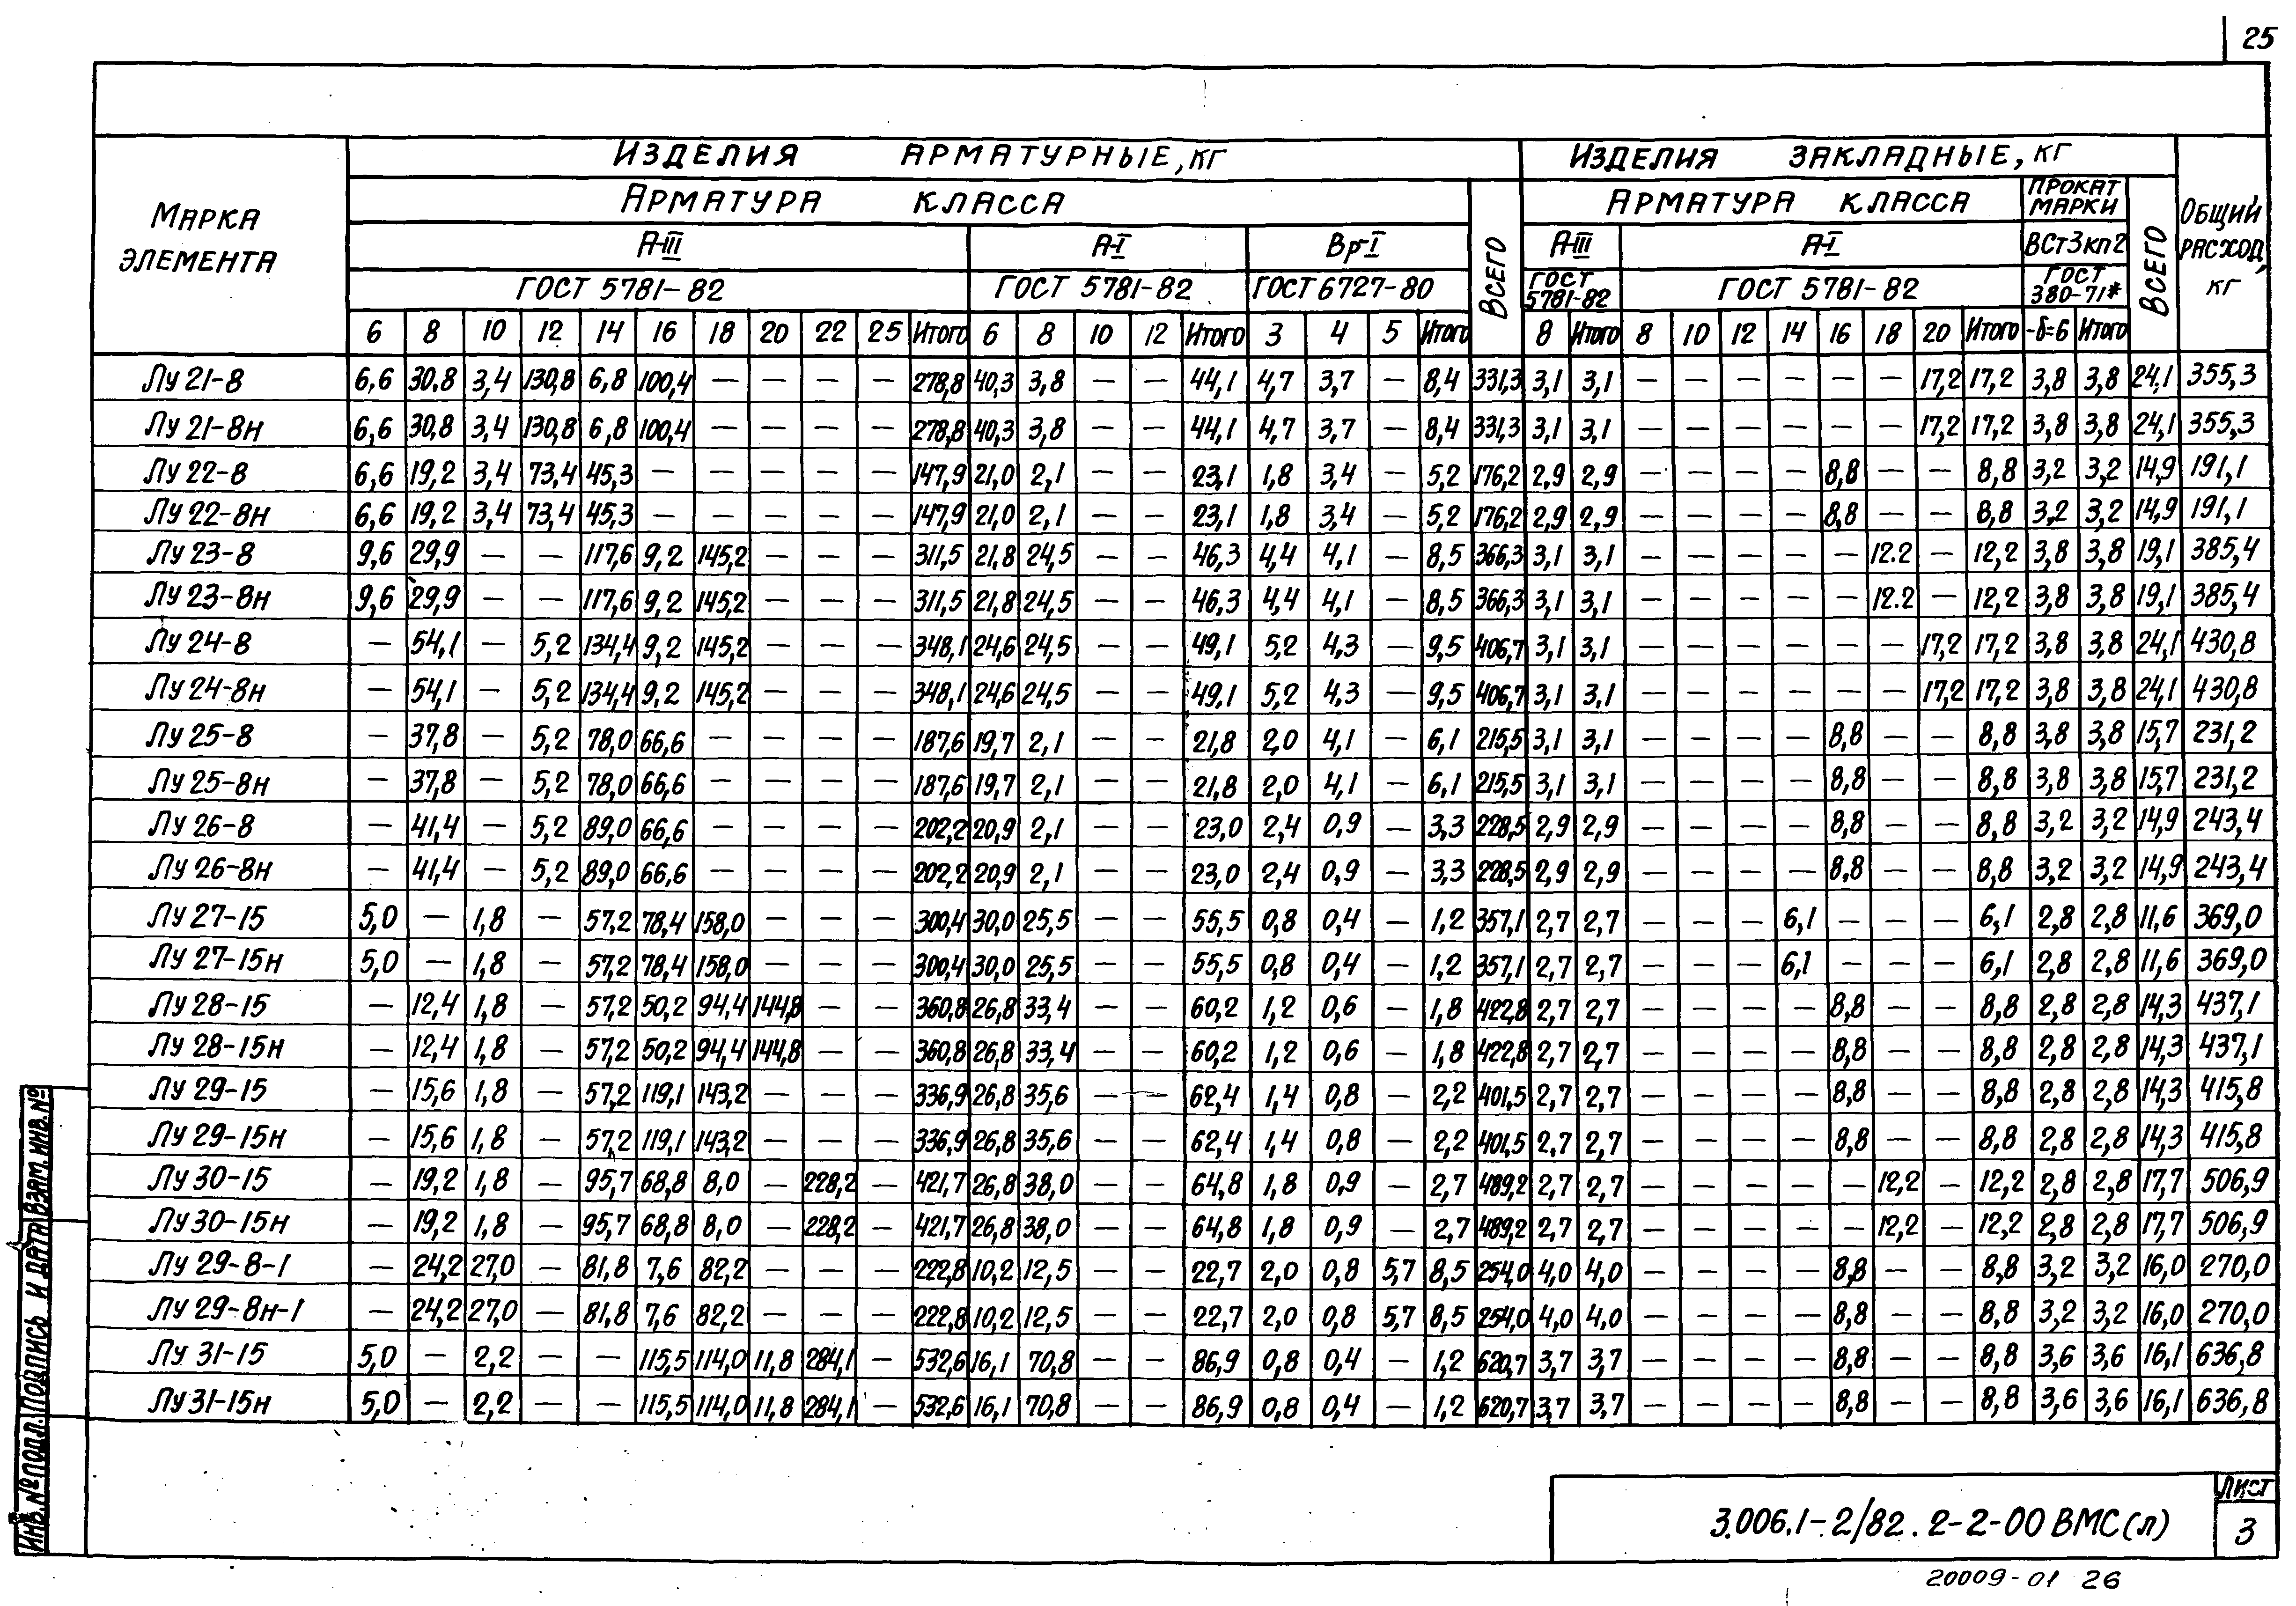 25
Марка элемента
Изделия арматурные, кг
Изделия закладные, кг
Общий расход, кг
Арматура класса
Всего
Арматура класса
Прокат марки
Всего
А-III
А-I
Вр-I
А-III
А-I
ВСт3кп2
ГОСТ 5781-82
ГОСТ 5781-82
ГОСТ 6727-80
ГОСТ 5781-82
ГОСТ 5781-82
ГОСТ 380-71*
6 8 10 12 14 16 18 20 22 25 Итого 6 8 10 12 Итого 3 4 5 Итого 8 Итого 8 10 12 14 16 18 20 Итого -δ=6 Итого
Лу 21-8 6,6 30,8 3,4 130,8 6,8 100,4 — — — — 278,8 40,3 3,8 — — 44,1 4,7 3,7 — 8,4 331,3 3,1 3,1 — — — — — — 17,2 17,2 3,8 3,8 24,1 355,3
Лу 21-8н 6,6 30,8 3,4 130,8 6,8 100,4 — — — — 278,8 40,3 3,8 — — 44,1 4,7 3,7 — 8,4 331,3 3,1 3,1 — — — — — — 17,2 17,2 3,8 3,8 24,1 355,3
Лу 22-8 6,6 19,2 3,4 73,4 45,3 — — — — — 147,9 21,0 2,1 — — 23,1 1,8 3,4 — 5,2 176,2 2,9 2,9 — — — — 8,8 — — 8,8 3,2 3,2 14,9 191,1
Лу 22-8н 6,6 19,2 3,4 73,4 45,3 — — — — — 147,9 21,0 2,1 — — 23,1 1,8 3,4 — 5,2 176,2 2,9 2,9 — — — — 8,8 — — 8,8 3,2 3,2 14,9 191,1
Лу 23-8 9,6 29,9 — — 117,6 9,2 145,2 — — — 311,5 21,8 24,5 — — 46,3 4,4 4,1 — 8,5 366,3 3,1 3,1 — — — — — 12.2 — 12,2 3,8 3,8 19,1 385,4
Лу 23-8н 9,6 29,9 — — 117,6 9,2 145,2 — — — 311,5 21,8 24,5 — — 46,3 4,4 4,1 — 8,5 366,3 3,1 3,1 — — — — — 12.2 — 12,2 3,8 3,8 19,1 385,4
Лу 24-8 — 54,1 — 5,2 134,4 9,2 145,2 — — — 348,1 24,6 24,5 — — 49,1 5,2 4,3 — 9,5 406,7 3,1 3,1 — — — — — — 17,2 17,2 3,8 3,8 24,1 430,8
Лу 24-8н — 54,1 — 5,2 134,4 9,2 145,2 — — — 348,1 24,6 24,5 — — 49,1 5,2 4,3 — 9,5 406,7 3,1 3,1 — — — — — — 17,2 17,2 3,8 3,8 24,1 430,8
Лу 25-8 — 37,8 — 5,2 78,0 66,6 — — — — 187,6 19,7 2,1 — — 21,8 2,0 4,1 — 6,1 215,5 3,1 3,1 — — — — 8,8 — — 8,8 3,8 3,8 15,7 231,2
Лу 25-8н — 37,8 — 5,2 78,0 66,6 — — — — 187,6 19,7 2,1 — — 21,8 2,0 4,1 — 6,1 215,5 3,1 3,1 — — — — 8,8 — — 8,8 3,8 3,8 15,7 231,2
Лу 26-8 — 41,4 — 5,2 89,0 66,6 — — — — 202,2 20,9 2,1 — — 23,0 2,4 0,9 — 3,3 228,5 2,9 2,9 — — — — 8,8 — — 8,8 3,2 3,2 14,9 243,4
Лу 26-8н — 41,4 — 5,2 89,0 66,6 — — — — 202,2 20,9 2,1 — — 23,0 2,4 0,9 — 3,3 228,5 2,9 2,9 — — — — 8,8 — — 8,8 3,2 3,2 14,9 243,4
Лу 27-15 5,0 — 1,8 — 57,2 78,4 158,0 — — — 300,4 30,0 25,5 — — 55,5 0,8 0,4 — 1,2 357,1 2,7 2,7 — — — 6,1 — — — 6,1 2,8 2,8 11,6 369,0
Лу 27-15н 5,0 — 1,8 — 57,2 78,4 158,0 — — — 300,4 30,0 25,5 — — 55,5 0,8 0,4 — 1,2 357,1 2,7 2,7 — — — 6,1 — — — 6,1 2,8 2,8 11,6 369,0
Лу 28-15 — 12,4 1,8 — 57,2 50,2 94,4 144,8 — — 360,8 26,8 33,4 — — 60,2 1,2 0,6 — 1,8 422,8 2,7 2,7 — — — — 8,8 — — 8,8 2,8 2,8 14,3 437,1
Лу 28-15н — 12,4 1,8 — 57,2 50,2 94,4 144,8 — — 360,8 26,8 33,4 — — 60,2 1,2 0,6 — 1,8 422,8 2,7 2,7 — — — — 8,8 — — 8,8 2,8 2,8 14,3 437,1
Лу 29-15 — 15,6 1,8 — 57,2 119,1 143,2 — — — 336,9 26,8 35,6 — — 62,4 1,4 0,8 — 2,2 401,5 2,7 2,7 — — — — 8,8 — — 8,8 2,8 2,8 14,3 415,8
Лу 29-15н — 15,6 1,8 — 57,2 119,1 143,2 — — — 336,9 26,8 35,6 — — 62,4 1,4 0,8 — 2,2 401,5 2,7 2,7 — — — — 8,8 — — 8,8 2,8 2,8 14,3 415,8
Лу 30-15 — 19,2 1,8 — 95,7 68,8 8,0 — 228,2 — 421,7 26,8 38,0 — — 64,8 1,8 0,9 — 2,7 489,2 2,7 2,7 — — — — — 12,2 — 12,2 2,8 2,8 17,7 506,9
Лу 30-15н — 19,2 1,8 — 95,7 68,8 8,0 — 228,2 — 421,7 26,8 38,0 — — 64,8 1,8 0,9 — 2,7 489,2 2,7 2,7 — — — — — 12,2 — 12,2 2,8 2,8 17,7 506,9
Лу 29-8-1 — 24,2 27,0 — 81,8 7,6 82,2 — — — 222,8 10,2 12,5 — — 22,7 2,0 0,8 5,7 8,5 254,0 4,0 4,0 — — — — 8,8 — — 8,8 3,2 3,2 16,0 270,0
Лу 29-8н-1 — 24,2 27,0 — 81,8 7,6 82,2 — — — 222,8 10,2 12,5 — — 22,7 2,0 0,8 5,7 8,5 254,0 4,0 4,0 — — — — 8,8 — — 8,8 3,2 3,2 16,0 270,0
Лу 31-15 5,0 — 2,2 — — 115,5 114,0 11,8 284,1 — 532,6 16,1 70,8 — — 86,9 0,8 0,4 — 1,2 620,7 3,7 3,7 — — — — 8,8 — — 8,8 3,6 3,6 16,1 636,8
Лу 31-15н 5,0 — 2,2 — — 115,5 114,0 11,8 284,1 — 532,6 16,1 70,8 — — 86,9 0,8 0,4 — 1,2 620,7 3,7 3,7 — — — — 8,8 — — 8,8 3,6 3,6 16,1 636,8
Инв.№ подл. Подпись и дата Взам. инв. №
3.006.1-2/82.2-2-00 ВМС(л)
Лист
3
20009-01 26